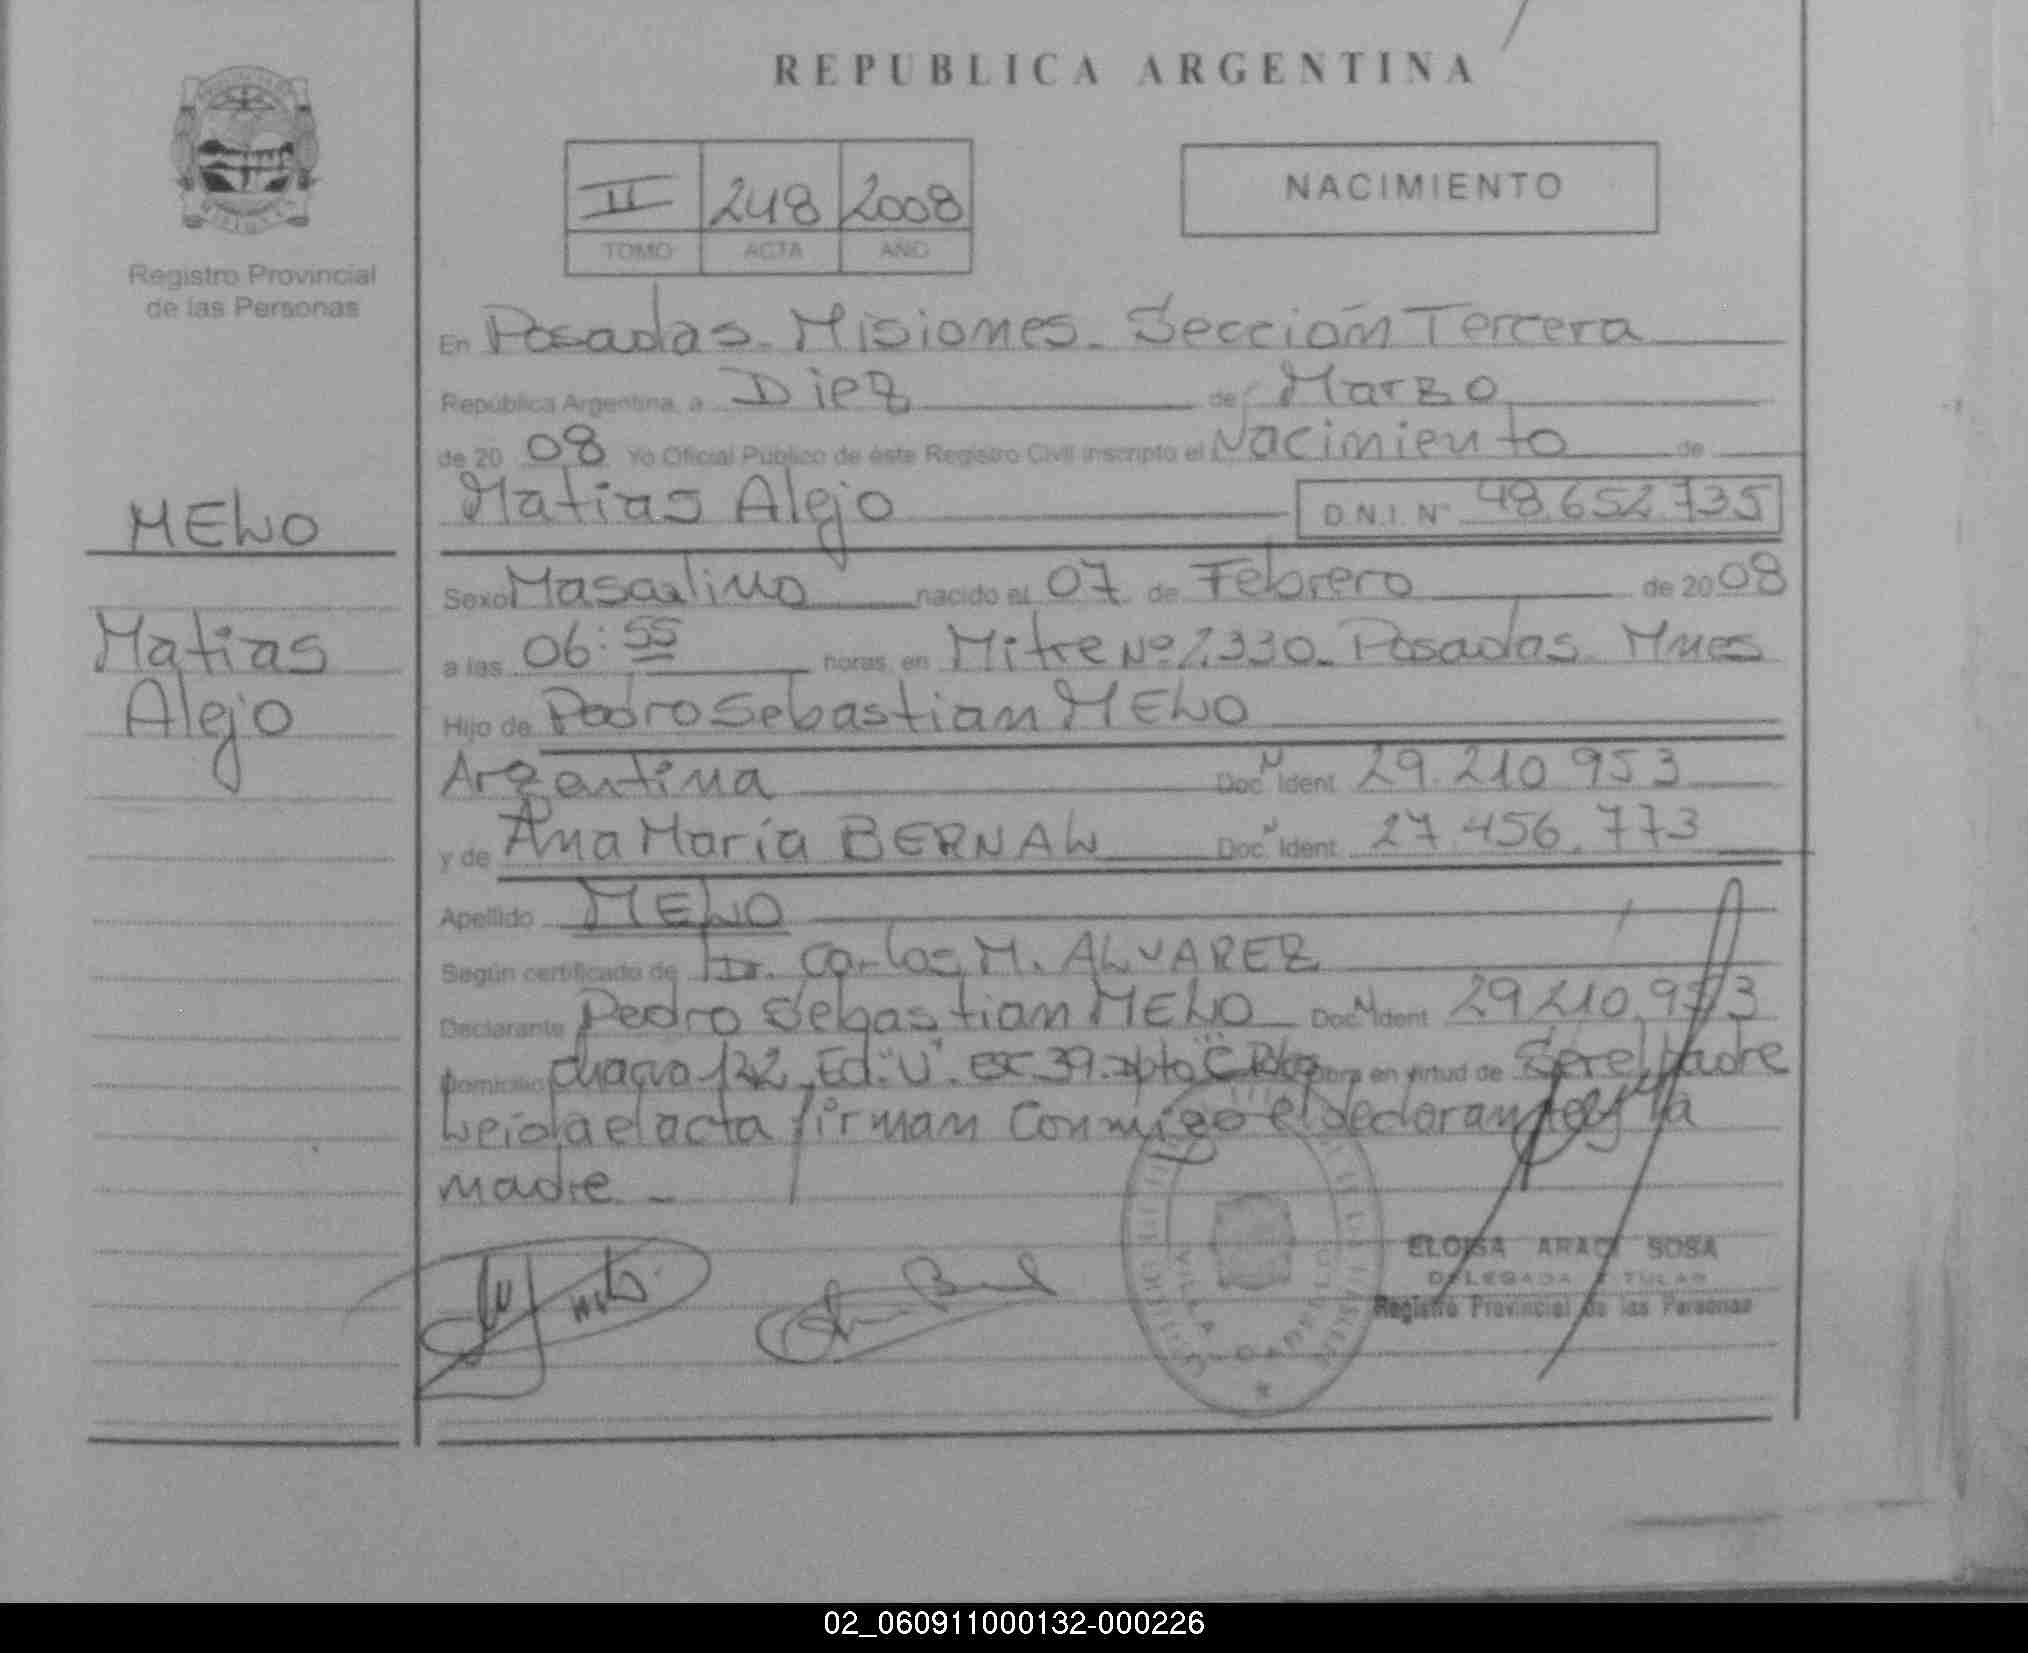 REPUBLICA ARGENTINA
II 248 2008
TOMO ACTA AÑO
NACIMIENTO
Registro Provincial
de las Personas
MELO
Matias
Alejo
En Posadas - Misiones - Sección Tercera
República Argentina, a Diez de Marzo
de 20 08 Yo Oficial Público de éste Registro Civil inscripto el Nacimiento de
Matias Alejo D.N.I. Nº 48.652.735
Sexo Masculino nacido el 07 de Febrero de 20 08
a las 06:55 horas, en Mitre Nº 2330 - Posadas - Mnes
Hijo de Pedro Sebastian MELO
Argentina Doc. N Ident. 29.210.953
y de Ana Maria BERNAL Doc. N Ident. 27.456.773
Apellido MELO
Según certificado de Dr. Carlos M. ALVAREZ
Declarante Pedro Sebastian MELO Doc. N Ident 29.210.953
Domicilio chacra 122 Ed. "U" esc. 39 dpto "C" obra en virtud de Ser el padre
Leida el acta firman conmigo el declarante y la
madre -
ELOISA ARACI SOSA
DELEGADA TITULAR
Registro Provincial de las Personas
VILLA CABELLO
02_060911000132-000226